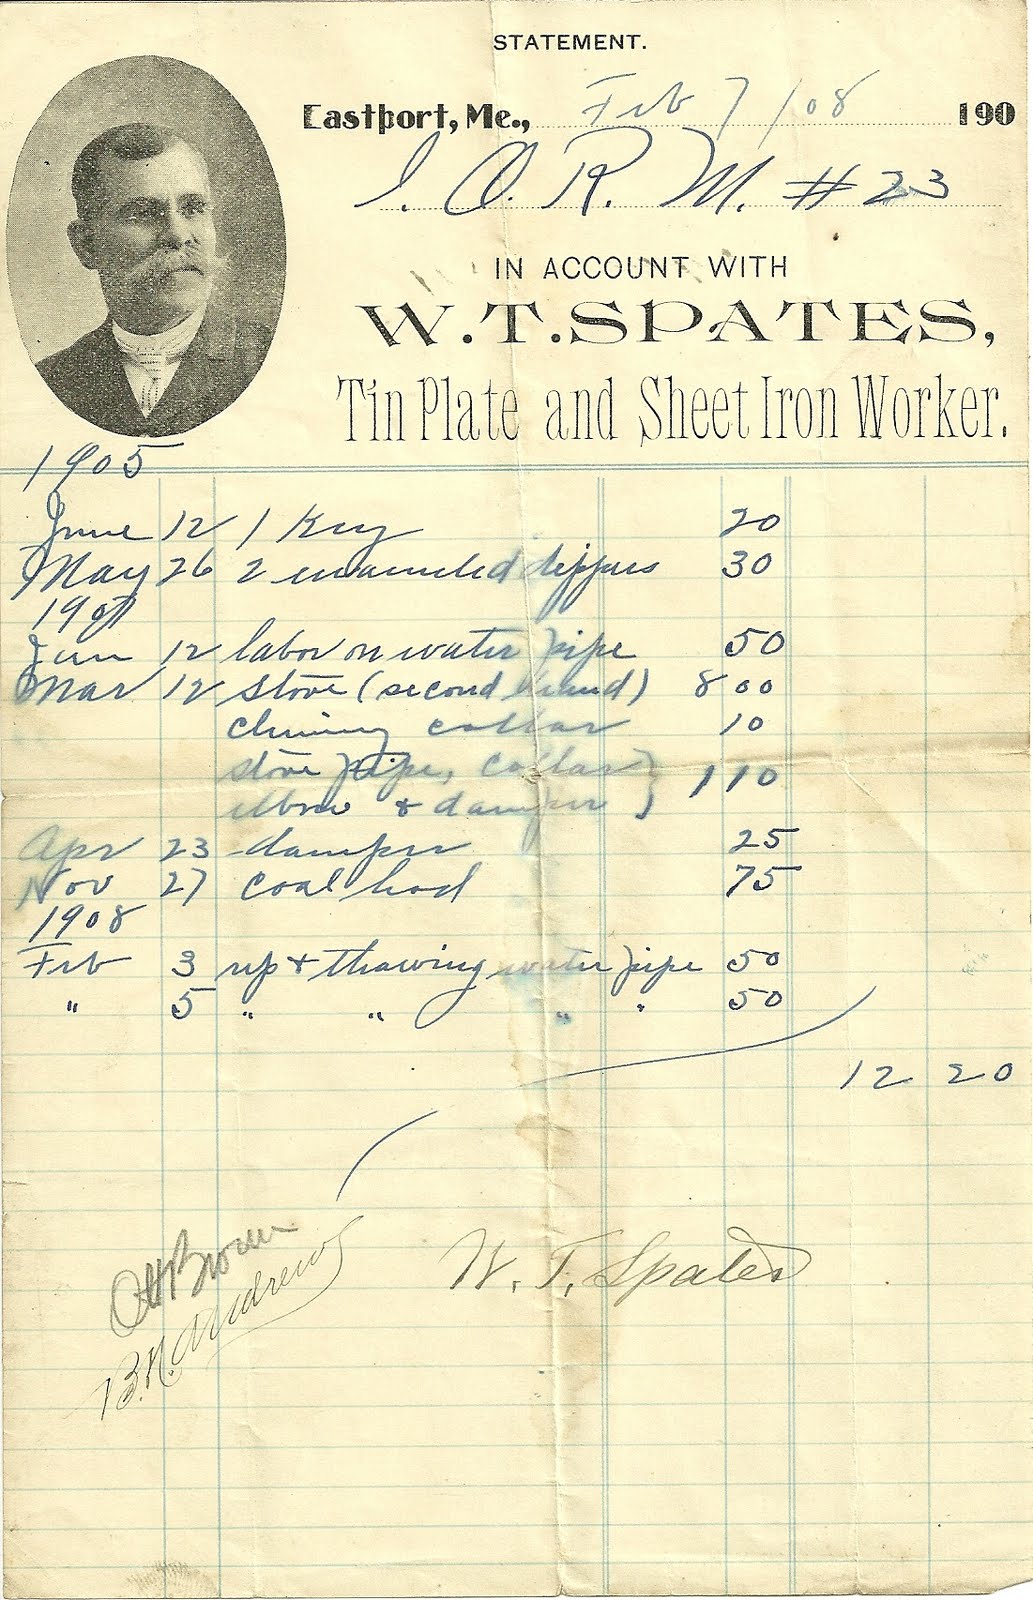 STATEMENT.
Eastport, Me., Feb 7/08 190
I. O. R. M. #23
IN ACCOUNT WITH
W. T. SPATES,
Tin Plate and Sheet Iron Worker.
1905
June 12 1 Key 20
May 26 2 enameled dippers 30
1907
Jan 12 labor on water pipe 50
Mar 12 stove (second hand) 8 00
chimney collar 10
stove pipe, collar
elbow & damper } 1 10
Apr 23 damper 25
Nov 27 coal hod 75
1908
Feb 3 rep & thawing water pipe 50
" 5 " " " " 50
12 20
Brown
B. N. Andrews
W. T. Spates